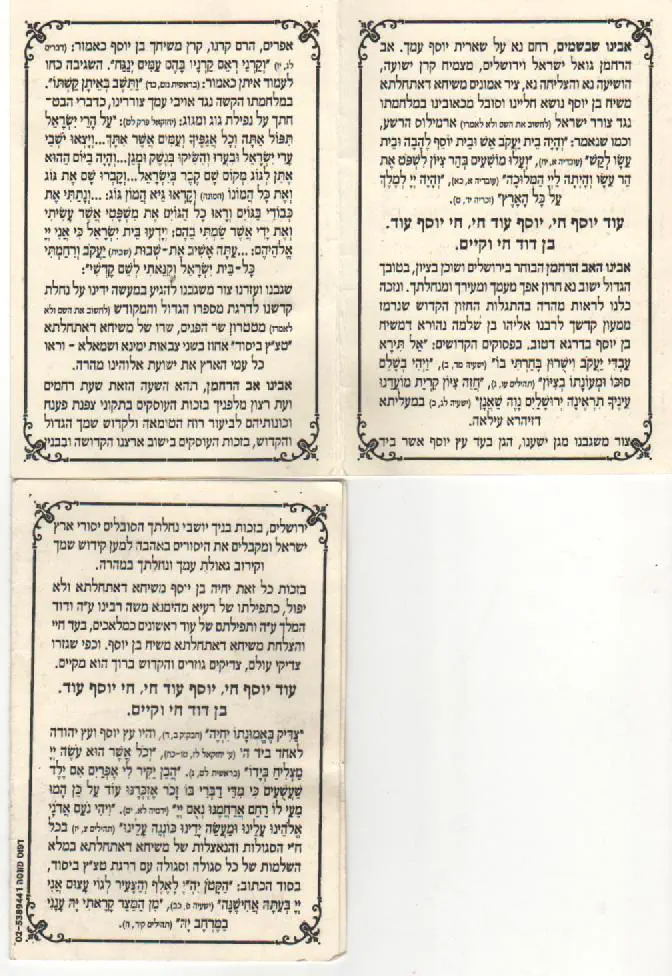 אבינו שבשמים, רחם נא על שארית יוסף עמך. אב
הרחמן גואל ישראל וירושלים, מצמיח קרן ישועה,
הושיעה נא והצליחה נא, ציר אמונים משיחא דאתחלתא
משיח בן יוסף נושא חליינו וסובל מכאובינו במלחמתו
נגד צורר ישראל (לחשוב את השם ולא לאמרו) ארמילוס הרשע,
וכמו שנאמר: "וְהָיָה בֵית יַעֲקֹב אֵשׁ וּבֵית יוֹסֵף לֶהָבָה וּבֵית
עֵשָׂו לְקַשׁ" (עובדיה א, יח), "וְעָלוּ מוֹשִׁעִים בְּהַר צִיּוֹן לִשְׁפֹּט אֶת
הַר עֵשָׂו וְהָיְתָה לַיְיָ הַמְּלוּכָה" (עובדיה א, כא), "וְהָיָה יְיָ לְמֶלֶךְ
עַל כָּל הָאָרֶץ" (זכריה יד, ט).
עוד יוסף חי, יוסף עוד חי, חי יוסף עוד.
בן דוד חי וקיים.
אבינו האב הרחמן הבוחר בירושלים ושוכן בציון, בטובך
הגדול ישוב נא חרון אפך מעמך ומעירך ומנחלתך. ונזכה
כלנו לראות מהרה בהתגלות החזון הקדוש שנרמז
ממעון קדשך לרבנו אליהו בן שלמה נהורא דמשיח
בן יוסף בדרגא דטוב. בפסוקים הקדושים: "אַל תִּירָא
עַבְדִּי יַעֲקֹב וִישֻׁרוּן בָּחַרְתִּי בוֹ" (ישעיה מד, ב), "וַיְהִי בְשָׁלֵם
סוּכּוֹ וּמְעוֹנָתוֹ בְצִיּוֹן" (תהילים עו, ג), "חֲזֵה צִיּוֹן קִרְיַת מוֹעֲדֵנוּ
עֵינֶיךָ תִרְאֶינָה יְרוּשָׁלַיִם נָוֶה שַׁאֲנָן" (ישעיה לג, כ) במעליתא
דזיהרא עילאה.
צור משגבנו מגן ישענו, הגן בעד עץ יוסף אשר ביד
אפרים, הרם קרנו, קרן משיחך בן יוסף כאמור: (דברים
לג, יז) "וְקַרְנֵי רְאֵם קַרְנָיו בָּהֶם עַמִּים יְנַגַּח". השגיבה כחו
לעמוד איתן כאמור: (בראשית מט, כד) "וַתֵּשֶׁב בְּאֵיתָן קַשְׁתּוֹ".
במלחמתו הקשה נגד אויבי עמך צוררינו, כדברי הבט־
חתך על נפילת גוג ומגוג: (יחזקאל פרק לט): "עַל הָרֵי יִשְׂרָאֵל
תִּפּוֹל אַתָּה וְכָל אֲגַפֶּיךָ וְעַמִּים אֲשֶׁר אִתָּךְ...וְיָצְאוּ יֹשְׁבֵי
עָרֵי יִשְׂרָאֵל וּבִעֲרוּ וְהִשִּׂיקוּ בְּנֶשֶׁק וּמָגֵן...וְהָיָה בַיּוֹם הַהוּא
אֶתֵּן לְגוֹג מְקוֹם שָׁם קֶבֶר בְּיִשְׂרָאֵל...וְקָבְרוּ שָׁם אֶת גּוֹג
וְאֶת כָּל הֲמוֹנוֹ (המונה) וְקָרְאוּ גֵּיא הֲמוֹן גּוֹג: ...וְנָתַתִּי אֶת
כְּבוֹדִי בַּגּוֹיִם וְרָאוּ כָל הַגּוֹיִם אֶת מִשְׁפָּטִי אֲשֶׁר עָשִׂיתִי
וְאֶת יָדִי אֲשֶׁר שַׂמְתִּי בָהֶם: וְיָדְעוּ בֵּית יִשְׂרָאֵל כִּי אֲנִי יְיָ
אֱלֹהֵיהֶם: ...עַתָּה אָשִׁיב אֶת־שְׁבוּת (שבית) יַעֲקֹב וְרִחַמְתִּי
כָּל־בֵּית יִשְׂרָאֵל וְקִנֵּאתִי לְשֵׁם קָדְשִׁי":
שגבנו ועזרנו צור משגבנו להגיע במעשה ידינו על נחלת
קדשנו לדרגת מספרו הגדול והמקודש (לחשוב את השם ולא
לאמרו) מטטרון שר הפנים, שרו של משיחא דאתחלתא
"טצ"ץ ביסוד" אחוז בשני צבאות ימינא ושמאלא - וראו
כל עמי הארץ את ישועת אלוהינו מהרה.
אבינו אב הרחמן, תהא השעה הזאת שעת רחמים
ועת רצון מלפניך בזכות העוסקים בתקוני צפנת פענח
וכוונותיהם לביעור רוח הטומאה ולקדוש שמך הגדול
והקדוש, בזכות העוסקים בישוב ארצנו הקדושה ובבנין
ירושלים, בזכות בניך יושבי נחלתך הסובלים יסורי ארץ
ישראל ומקבלים את היסורים באהבה למען קידוש שמך
וקירוב גאולת עמך ונחלתך במהרה.
בזכות כל זאת יחיה בן יוסף משיחא דאתחלתא ולא
יפול, כתפילתו של רעיא מהימנא משה רבינו ע"ה ודוד
המלך ע"ה ותפילתם של עוד ראשונים כמלאכים, בעד חיי
והצלחת משיחא דאתחלתא משיח בן יוסף. וכפי שגזרו
צדיקי עולם, צדיקים גוזרים והקדוש ברוך הוא מקיים.
עוד יוסף חי, יוסף עוד חי, חי יוסף עוד.
בן דוד חי וקיים.
"צַדִּיק בֶּאֱמוּנָתוֹ יִחְיֶה" (חבקוק ב, ד), והיו עץ יוסף ועץ יהודה
לאחד ביד ה' (ע' יחזקאל לז, טז-כח), "וְכֹל אֲשֶׁר הוּא עֹשֶׂה יְיָ
מַצְלִיחַ בְּיָדוֹ" (בראשית לט, ג). "הֲבֵן יַקִּיר לִי אֶפְרַיִם אִם יֶלֶד
שַׁעֲשֻׁעִים כִּי מִדֵּי דַבְּרִי בּוֹ זָכֹר אֶזְכְּרֶנּוּ עוֹד עַל כֵּן הָמוּ
מֵעַי לוֹ רַחֵם אֲרַחֲמֶנּוּ נְאֻם יְיָ" (ירמיה לא, יט). "וִיהִי נֹעַם אֲדֹנָי
אֱלֹהֵינוּ עָלֵינוּ וּמַעֲשֵׂה יָדֵינוּ כּוֹנְנָה עָלֵינוּ" (תהילים צ, יז) בכל
ח"י הסגולות והנאצלות של משיחא דאתחלתא במלא
השלמות של כל סגולה וסגולה עם דרגת טצ"ץ ביסוד,
בסוד הכתוב: "הַקָּטֹן יִהְיֶה לָאֶלֶף וְהַצָּעִיר לְגוֹי עָצוּם אֲנִי
יְיָ בְּעִתָּהּ אֲחִישֶׁנָּה" (ישעיה ס, כב), "מִן הַמֵּצַר קָרָאתִי יָּהּ עָנָנִי
בַמֶּרְחָב יָהּ" (תהילים קיח, ה).
דפוס מונסה 02-5389441